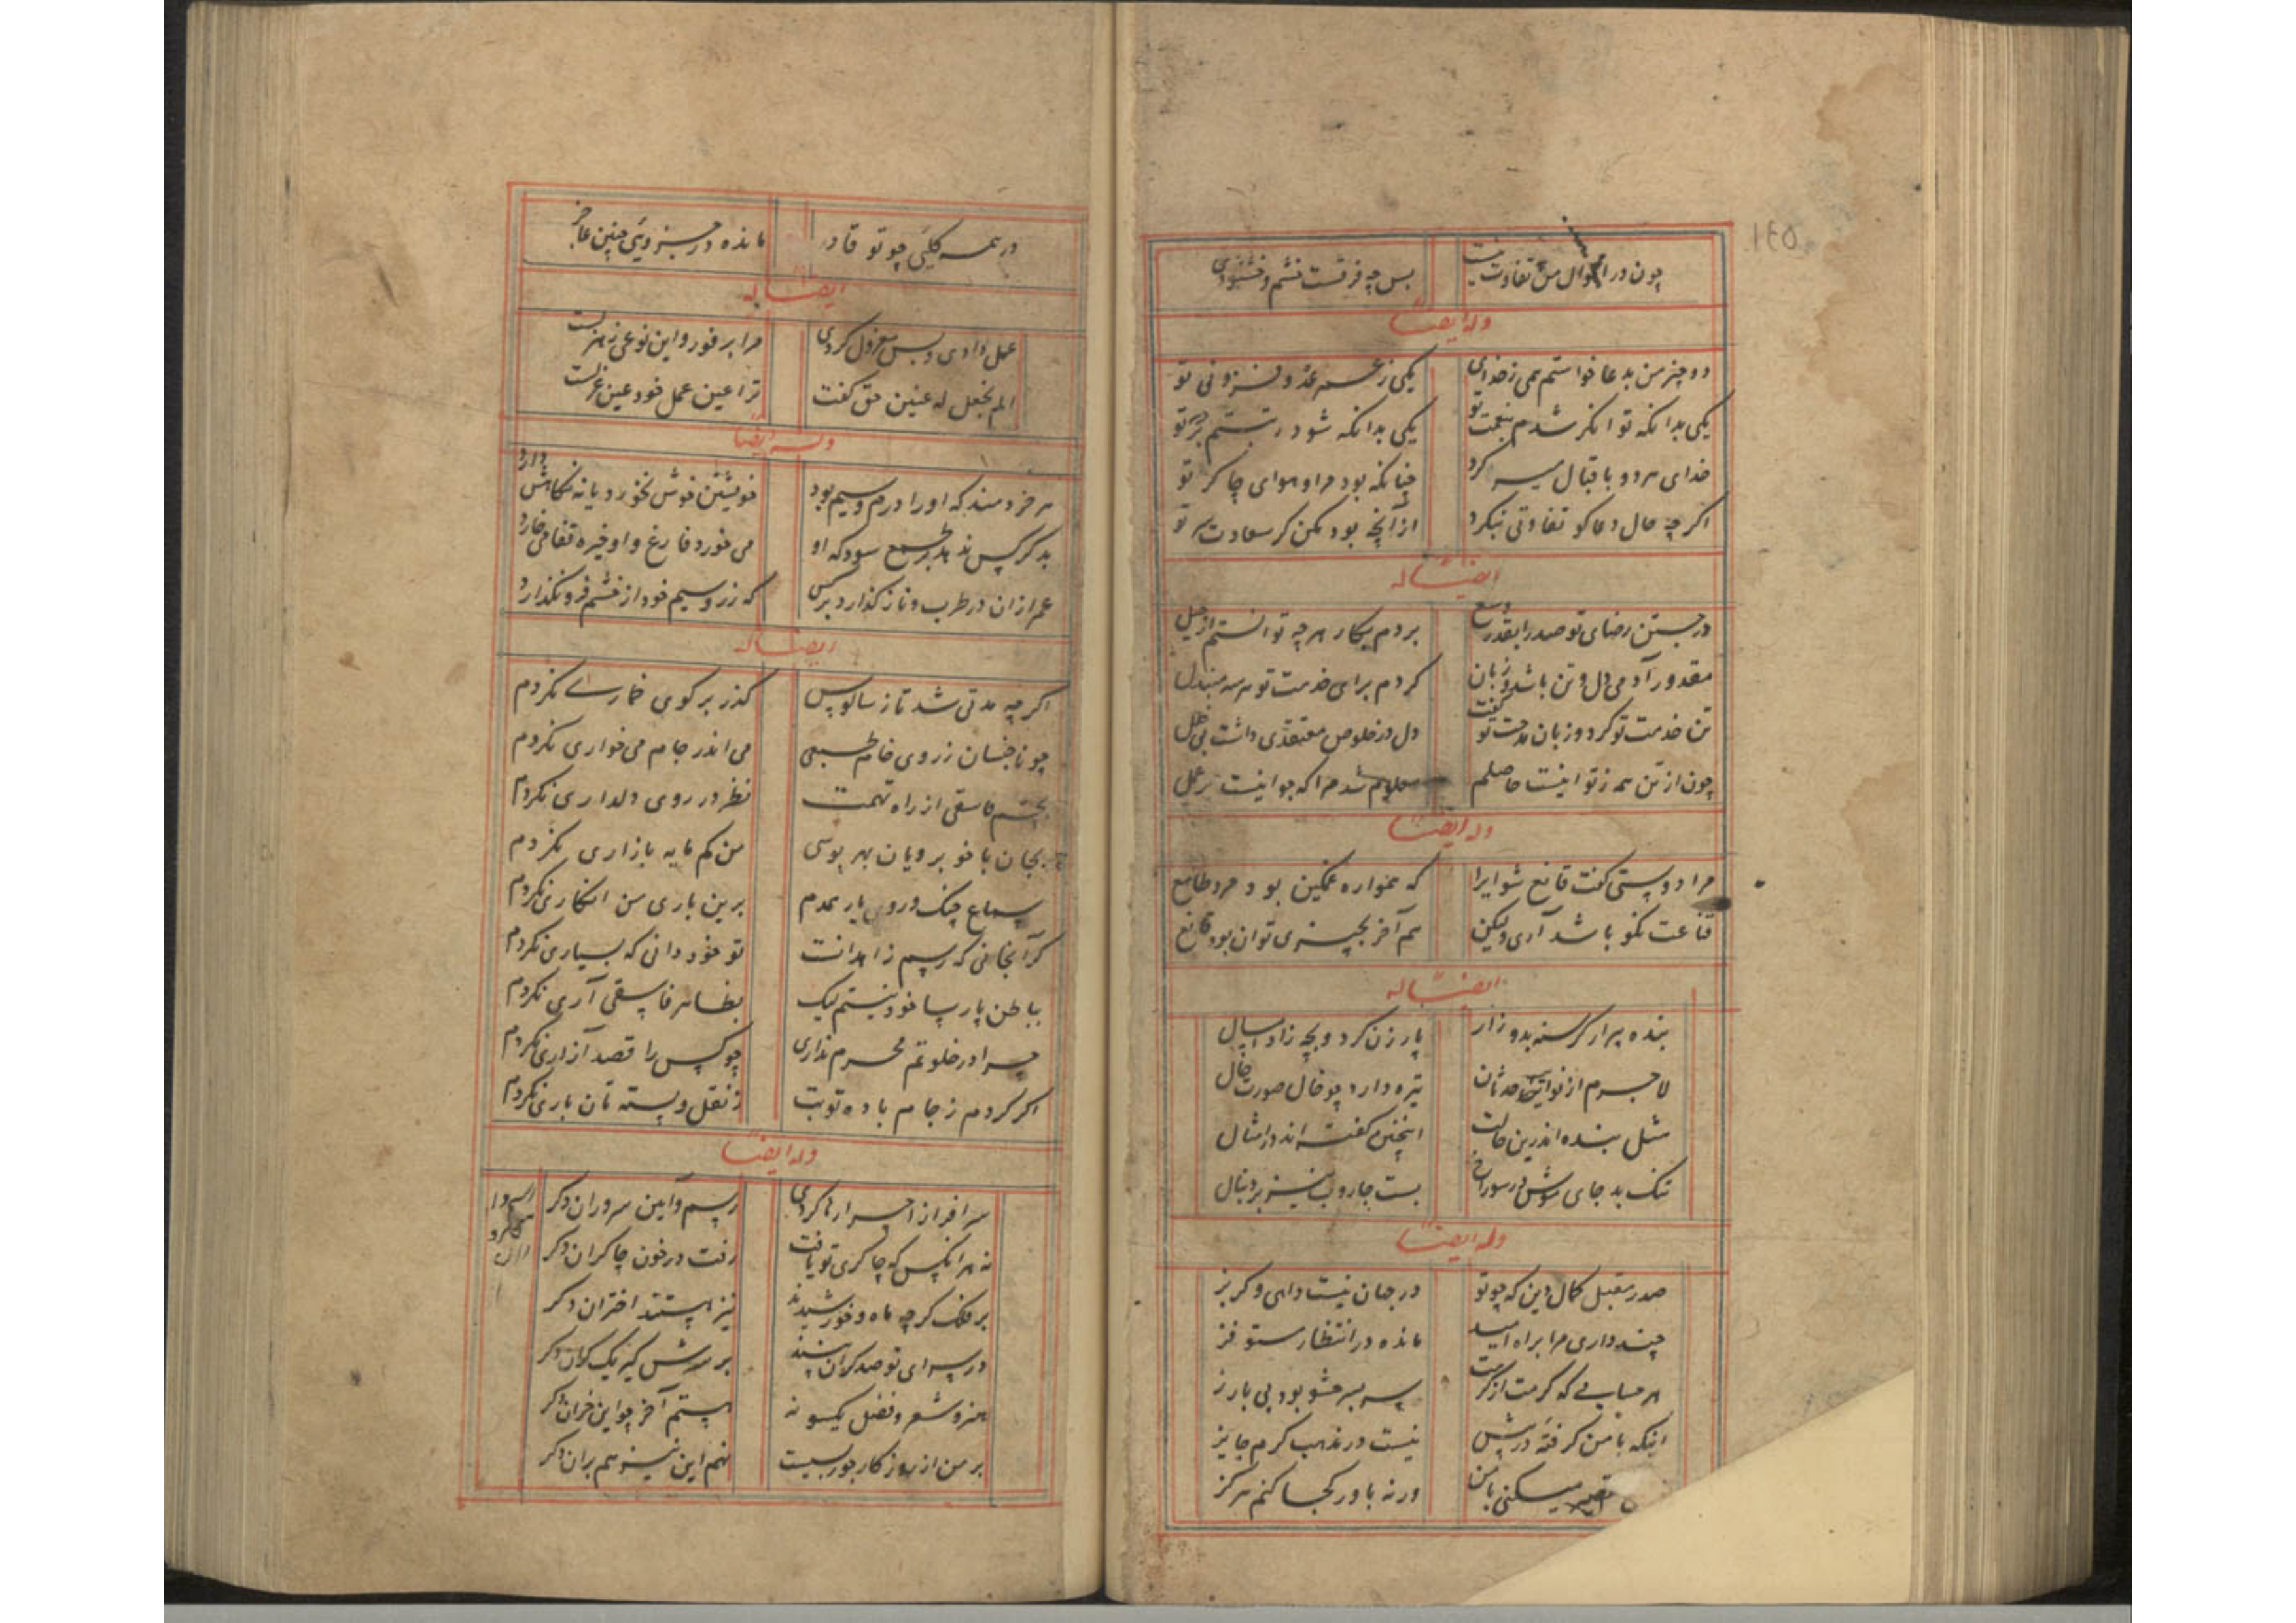 ١٤٥
چون در احوال من تفاوت نیست بس چه فرقست خشم و خشنودی
وله ایضا
دو چیز من بدعا خواستم همی ز خدای یکی ز عمر عدو فزونی تو
یکی بدانکه توانکر شدم بنعمت تو یکی بدانکه شود رستم تو
خدای هر دو باقبال میسر کرد چنانکه بود مراد و هوای چاکر تو
اکر چه حال دعاکو تفاوتی نکرد از آنچه بود ممکن کر سعادت تو
ایضا له
در جستن رضای تو صدرا بقدر وسع بردم بکار هر چه توانستم از حیل
مقدور آدمی دل و تن باشد و زبان کردم برای خدمت تو هر سه مبتدل
تن خدمت تو کرد و زبان مدحت تو کفت دل در خلوص معتقدی داشت بی خلل
چون از تن همه ز تو اینست حاصلم معلوم شد مرا که جو اینست بر عمل
وله ایضا
مرا دوستی کفت قانع شو ایرا که همواره غمکین بود مرد طامع
قناعت نکو باشد آری ولیکن هم آخر بچیزی توان بود قانع
ایضا له
بنده بیرار کرسنه بدو زار پار زن کرد و بچه زاد امسال
لاجرم از نوایب حدثان تیره دارد چو خال صورت حال
مثل بنده اندرین حالت اینچنین کفته اند در امثال
تنک بد جای موش در سوراخ بست جاروب نیز بر دنبال
وله ایضا
صدر مقبل کمال دین که چو تو در جهان نیست داهی و کربز
چند داری مرا براه امید مانده در انتظار مستوفز
هر حسابی که کرمت از کرمت سر بسر حشو بود بی بارز
اینکه با من کرفتهٔ در پیش نیست در مذهب کرم جایز
تقصیر میکنی با من ور نه باور کجا کنم هرکز
در همه کلیی چو تو قادر مانده در جزویی چنین عاجز
ایضا له
عمل دادی و بس معزول کردی مرا بر فور و این نوعی ز هزلست
الم نجعل له عینین حق کفت ترا عین عمل خود عین عزلست
وله ایضا
هر خردمند که او را درم و سیم بود خویشتن خوش نخورد یا نه نکاهش دارد
بد کر کس ندهد بر طمع سود که او می خورد فارغ و او خیره قفا می خارد
عمر ازان در طرب و ناز کذارد نرکس که زر و سیم خود از خشم فرو نکذارد
ایضا له
اکر چه مدتی شد تا ز سالوس کذر بر کوی خماری نکردم
چو ناجنسان ز روی خام طبعی می اندر جام می خواری نکردم
بچشم فاسقی از راه تهمت نظر در روی دلداری نکردم
بجان با خوبرویان بهر بوسی من کم مایه بازاری نکردم
سماع چنک و روی یار همدم برین باری من انکاری نکردم
کرانجانی که رسم زاهدانست تو خود دانی که بسیاری نکردم
بباطن پارسا خود نیستم لیک بظاهر فاسقی آری نکردم
چرا در خلوتم محرم نداری چو کس را قصد آزاری نکردم
اکر کردم ز جام باده توبت ز نقل و پسته تان باری نکردم
وله ایضا
سرافراز احرار ها کردی رسم و آیین سروران دکر
نه هر انکس که چاکری تو یافت رفت در خون چاکران دکر
بر فلک کرچه ماه و خورشیدند نیز هستند اختران دکر
در سرای تو صد کران باشند بر سرش کیر یک کران دکر
هنر و شعر و فضل یکسو نه هستم آخر چو این خران دکر
بر من از روزکار جور بسیست نهم این نیز هم بران دکر